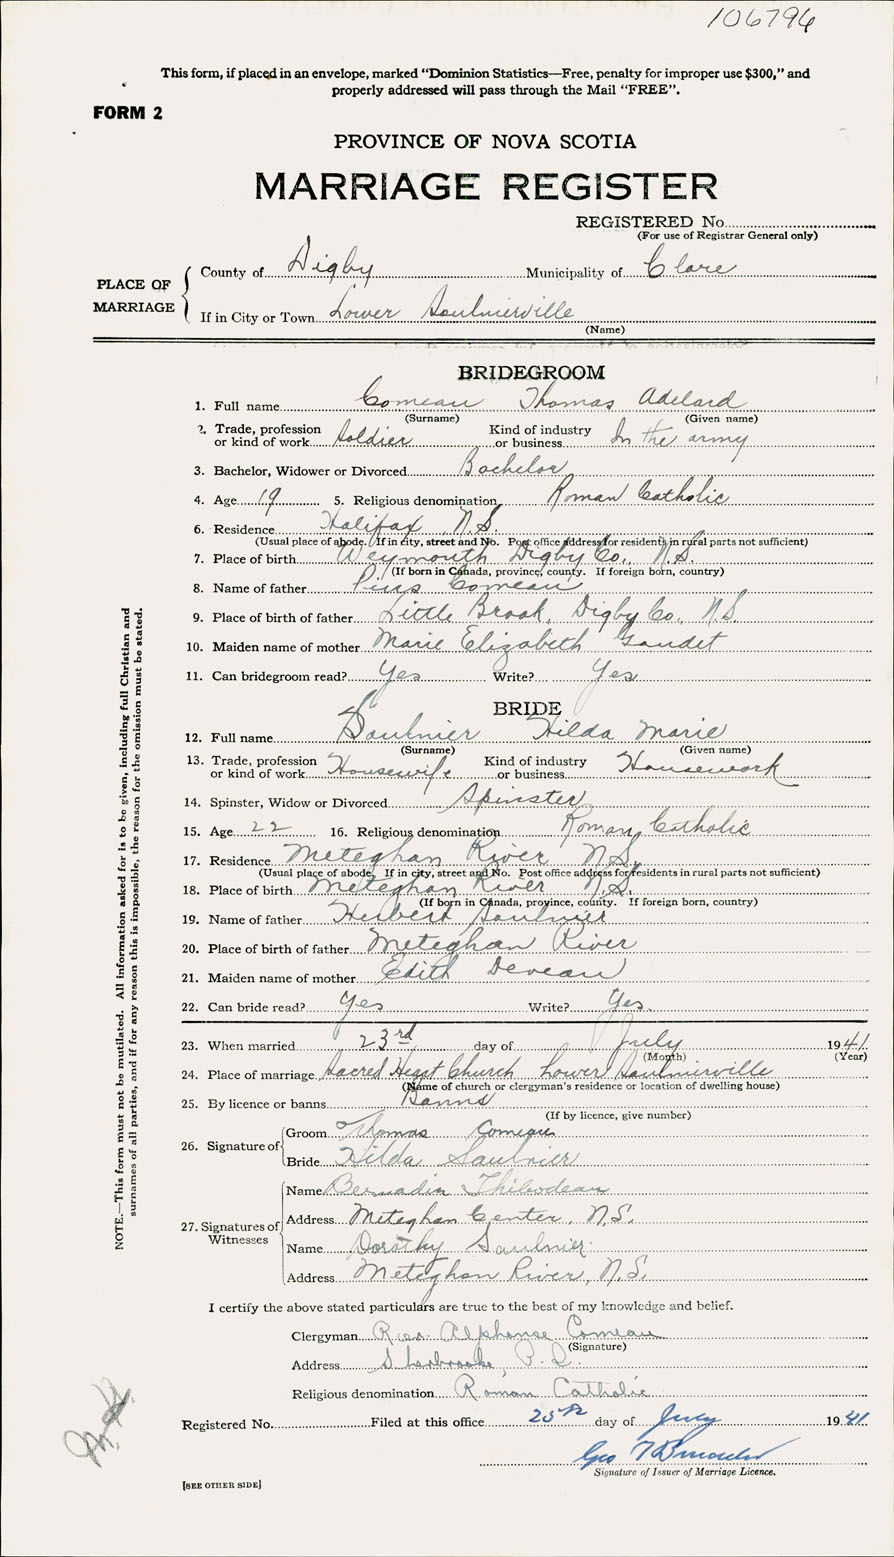 106796
This form, if placed in an envelope, marked "Dominion Statistics—Free, penalty for improper use $300," and
properly addressed will pass through the Mail "FREE".
FORM 2
PROVINCE OF NOVA SCOTIA
MARRIAGE REGISTER
REGISTERED No.
(For use of Registrar General only)
PLACE OF MARRIAGE
County of Digby Municipality of Clare
If in City or Town Lower Saulnierville
(Name)
BRIDEGROOM
1. Full name Comeau Thomas Adelard
(Surname) (Given name)
2. Trade, profession or kind of work Soldier Kind of industry or business In the army
3. Bachelor, Widower or Divorced Bachelor
4. Age 19 5. Religious denomination Roman Catholic
6. Residence Halifax N.S.
(Usual place of abode. If in city, street and No. Post office address for residents in rural parts not sufficient)
7. Place of birth Weymouth Digby Co., N.S.
(If born in Canada, province, county. If foreign born, country)
8. Name of father Pius Comeau
9. Place of birth of father Little Brook, Digby Co., N.S.
10. Maiden name of mother Marie Elizabeth Gaudet
11. Can bridegroom read? Yes Write? Yes
BRIDE
12. Full name Saulnier Hilda Marie
(Surname) (Given name)
13. Trade, profession or kind of work Housewife Kind of industry or business Housework
14. Spinster, Widow or Divorced Spinster
15. Age 22 16. Religious denomination Roman Catholic
17. Residence Meteghan River N.S.
(Usual place of abode. If in city, street and No. Post office address for residents in rural parts not sufficient)
18. Place of birth Meteghan River N.S.
(If born in Canada, province, county. If foreign born, country)
19. Name of father Herbert Saulnier
20. Place of birth of father Meteghan River
21. Maiden name of mother Edith Deveau
22. Can bride read? Yes Write? Yes.
23. When married 23rd day of July 1941
(Month) (Year)
24. Place of marriage Sacred Heart Church Lower Saulnierville
(Name of church or clergyman's residence or location of dwelling house)
25. By licence or banns Banns
(If by licence, give number)
26. Signature of
Groom Thomas Comeau
Bride Hilda Saulnier
27. Signatures of Witnesses
Name Bernadin Thibodeau
Address Meteghan Center, N.S.
Name Dorothy Saulnier
Address Meteghan River, N.S.
I certify the above stated particulars are true to the best of my knowledge and belief.
Clergyman Alphonse Comeau
(Signature)
Address Sherbrooke, P.Q.
Religious denomination Roman Catholic
Registered No. Filed at this office 25th day of July 1941
Geo
Signature of Issuer of Marriage Licence.
[SEE OTHER SIDE]
NOTE.—This form must not be mutilated. All information asked for is to be given, including full Christian and
surnames of all parties, and if for any reason this is impossible, the reason for the omission must be stated.